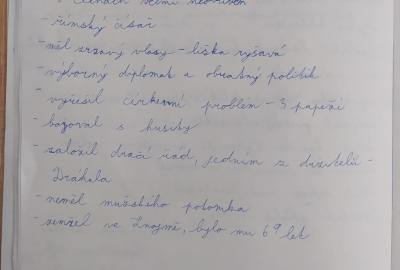 v Čechách velmi neoblíben
- římský císař
- měl zrzavý vlasy - liška ryšavá
- výborný diplomat a obratný politik
- vyřešil církevní problém - 3 papeží
- bojoval s husity
- založil dračí řád, jedním z držitelů -
Drákula
- neměl mužského potomka
- zemřel ve Znojmě, bylo mu 69 let